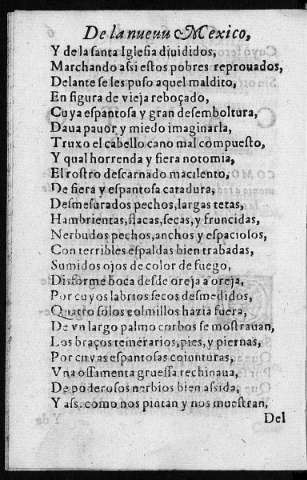 De la nueua Mexico,
Y de la santa Iglesia diuididos,
Marchando assi estos pobres reprouados,
Delante se les puso aquel maldito,
En figura de vieja reboçado,
Cuya espantosa y gran desemboltura,
Daua pauor y miedo imaginarla,
Truxo el cabello cano mal compuesto,
Y qual horrenda y fiera notomia,
El rostro descarnado macilento,
De fiera y espantosa catadura,
Desmesurados pechos, largas tetas,
Hambrientas, flacas, secas, y fruncidas,
Nerbudos pechos, anchos y espaciosos,
Con terribles espaldas bien trabadas,
Sumidos ojos de color de fuego,
Disforme boca desde oreja a oreja,
Por cuyos labrios secos desmedidos,
Quatro sólos colmillos hazia fuera,
De vn largo palmo corbos se mostrauan,
Los braços temerarios, pies, y piernas,
Por cuyas espantosas coiunturas,
Vna ossamenta gruessa rechinaua,
De poderosos nerbios bien assida,
Y assi como nos pintan y nos muestran,
Del